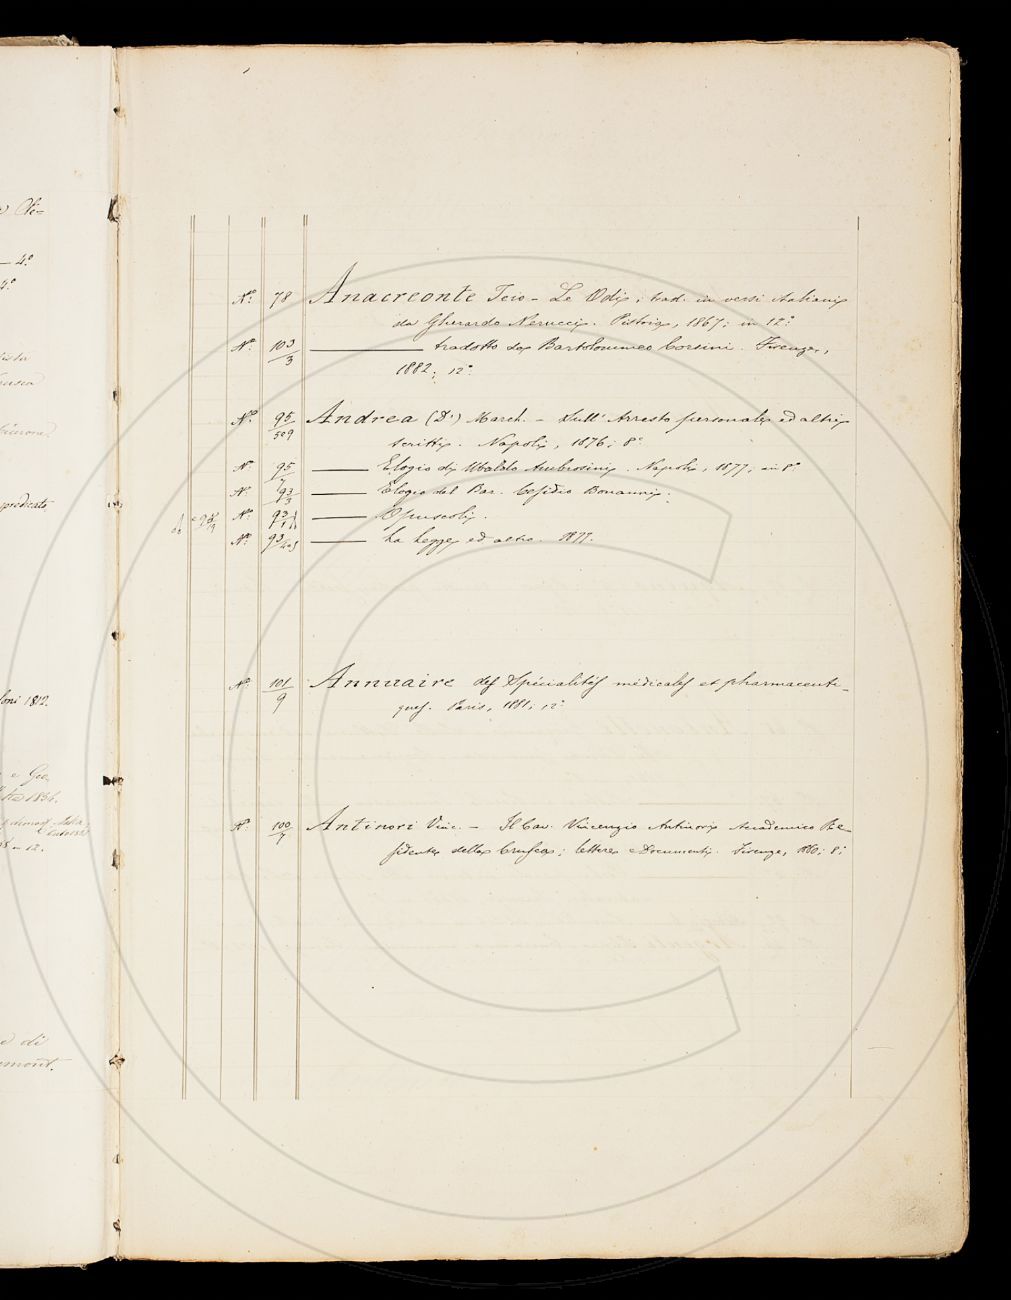 a Cle=
— 4.º
4.º
predicato
loni 1812.
e Ge
1836.
e di
emont.
Nº. 78 Anacreonte Teio – Le Odi; trad. in versi italiani
da Gherardo Nerucci. Pistoia, 1867; in 12º
Nº. 103/3 ——— tradotto da Bartolommeo Corsini. Firenze,
1882; 12º
Nº. 95/509 Andrea (D') March. – Sull' Arresto personale ed altri
scritti. Napoli, 1876; 8º
Nº. 95/7 ——— Elogio di Ubaldo Ambrosini. Napoli, 1877, in 8º
Nº. 93/3 ——— Elogio del Bar. Cesidio Bonanni.
Nº. ——— Opuscoli.
Nº. ——— La Legge ed altro. 1877.
Nº. 101/9 Annuaire des Spécialités médicales et pharmaceuti-
ques. Paris, 1881; 12º
Nº. 100/7 Antinori Vinc. – Il Cav. Vincenzio Antinori Accademico Re-
sidente della Crusca; lettere e Documenti. Firenze, 1860; 8º